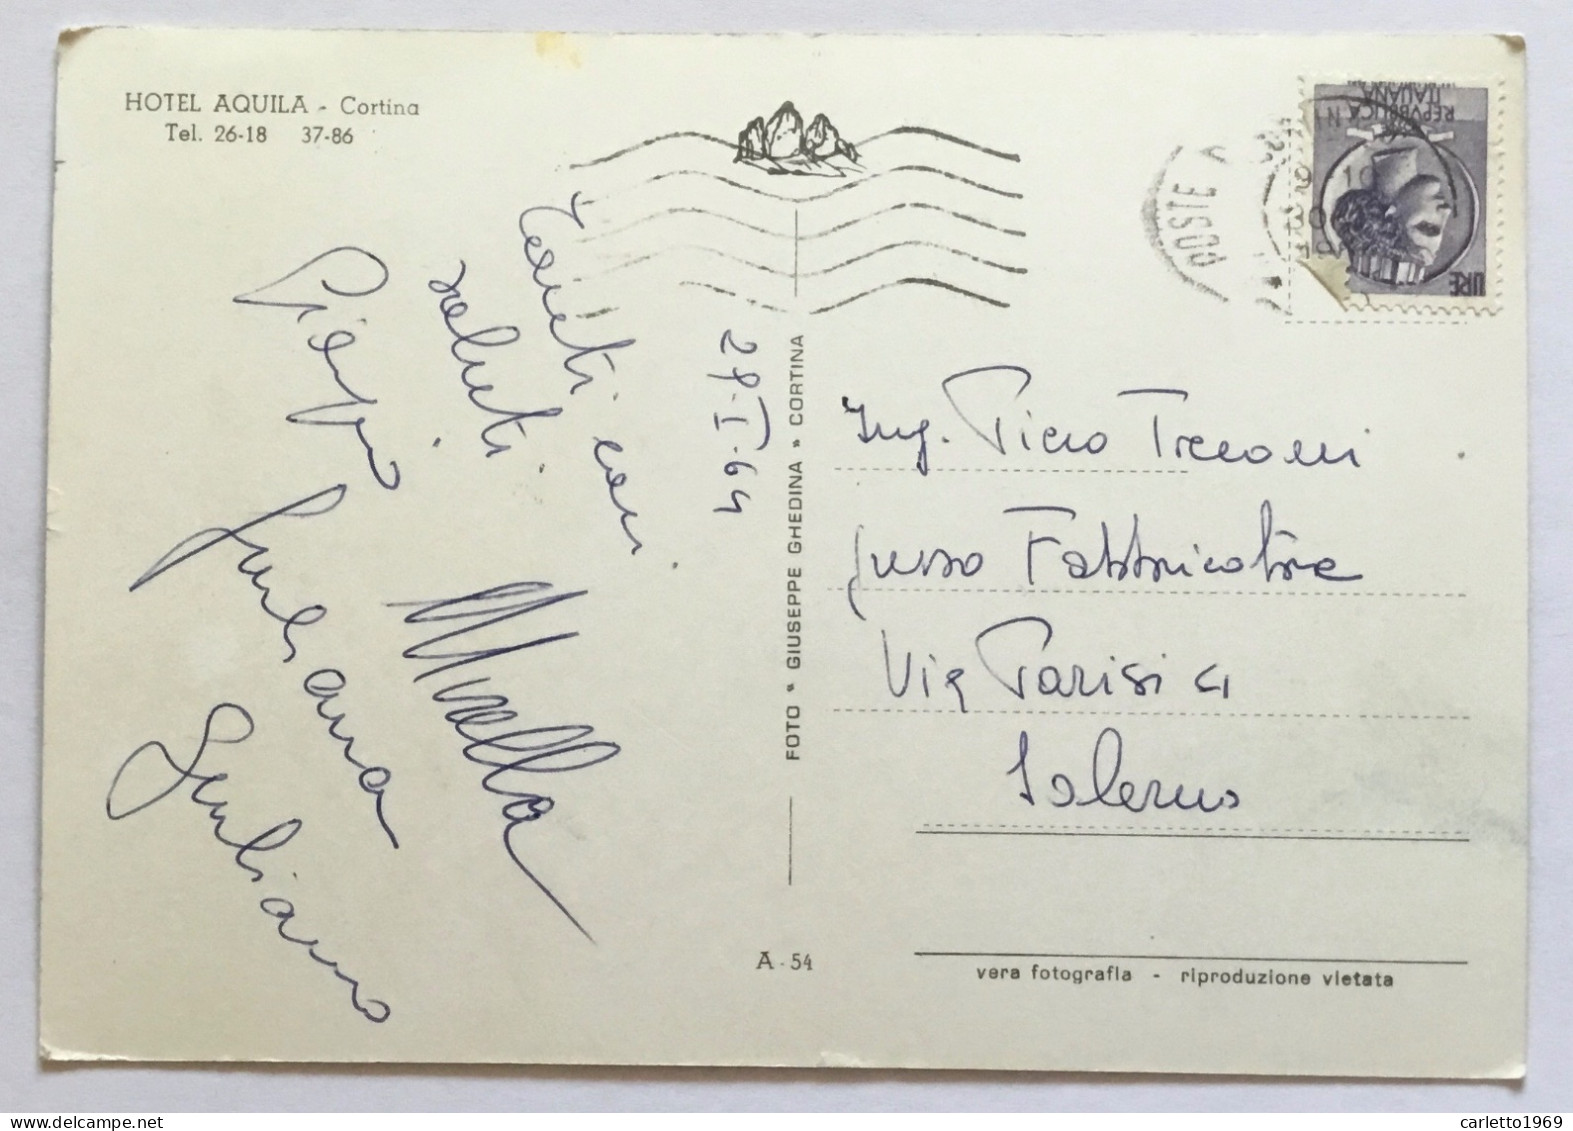 HOTEL AQUILA - Cortina
Tel. 26-18 37-86
Tanti cari
saluti
Mirella
Giuliana
Giuliano
27-I-64
FOTO * GIUSEPPE GHEDINA * CORTINA
A - 54
POSTE
REPVBBLICA
ITALIANA
LIRE
Ing. Piero
presso Fabbricatore
Via Parisi 4
Salerno
vera fotografia - riproduzione vietata
carletto1969